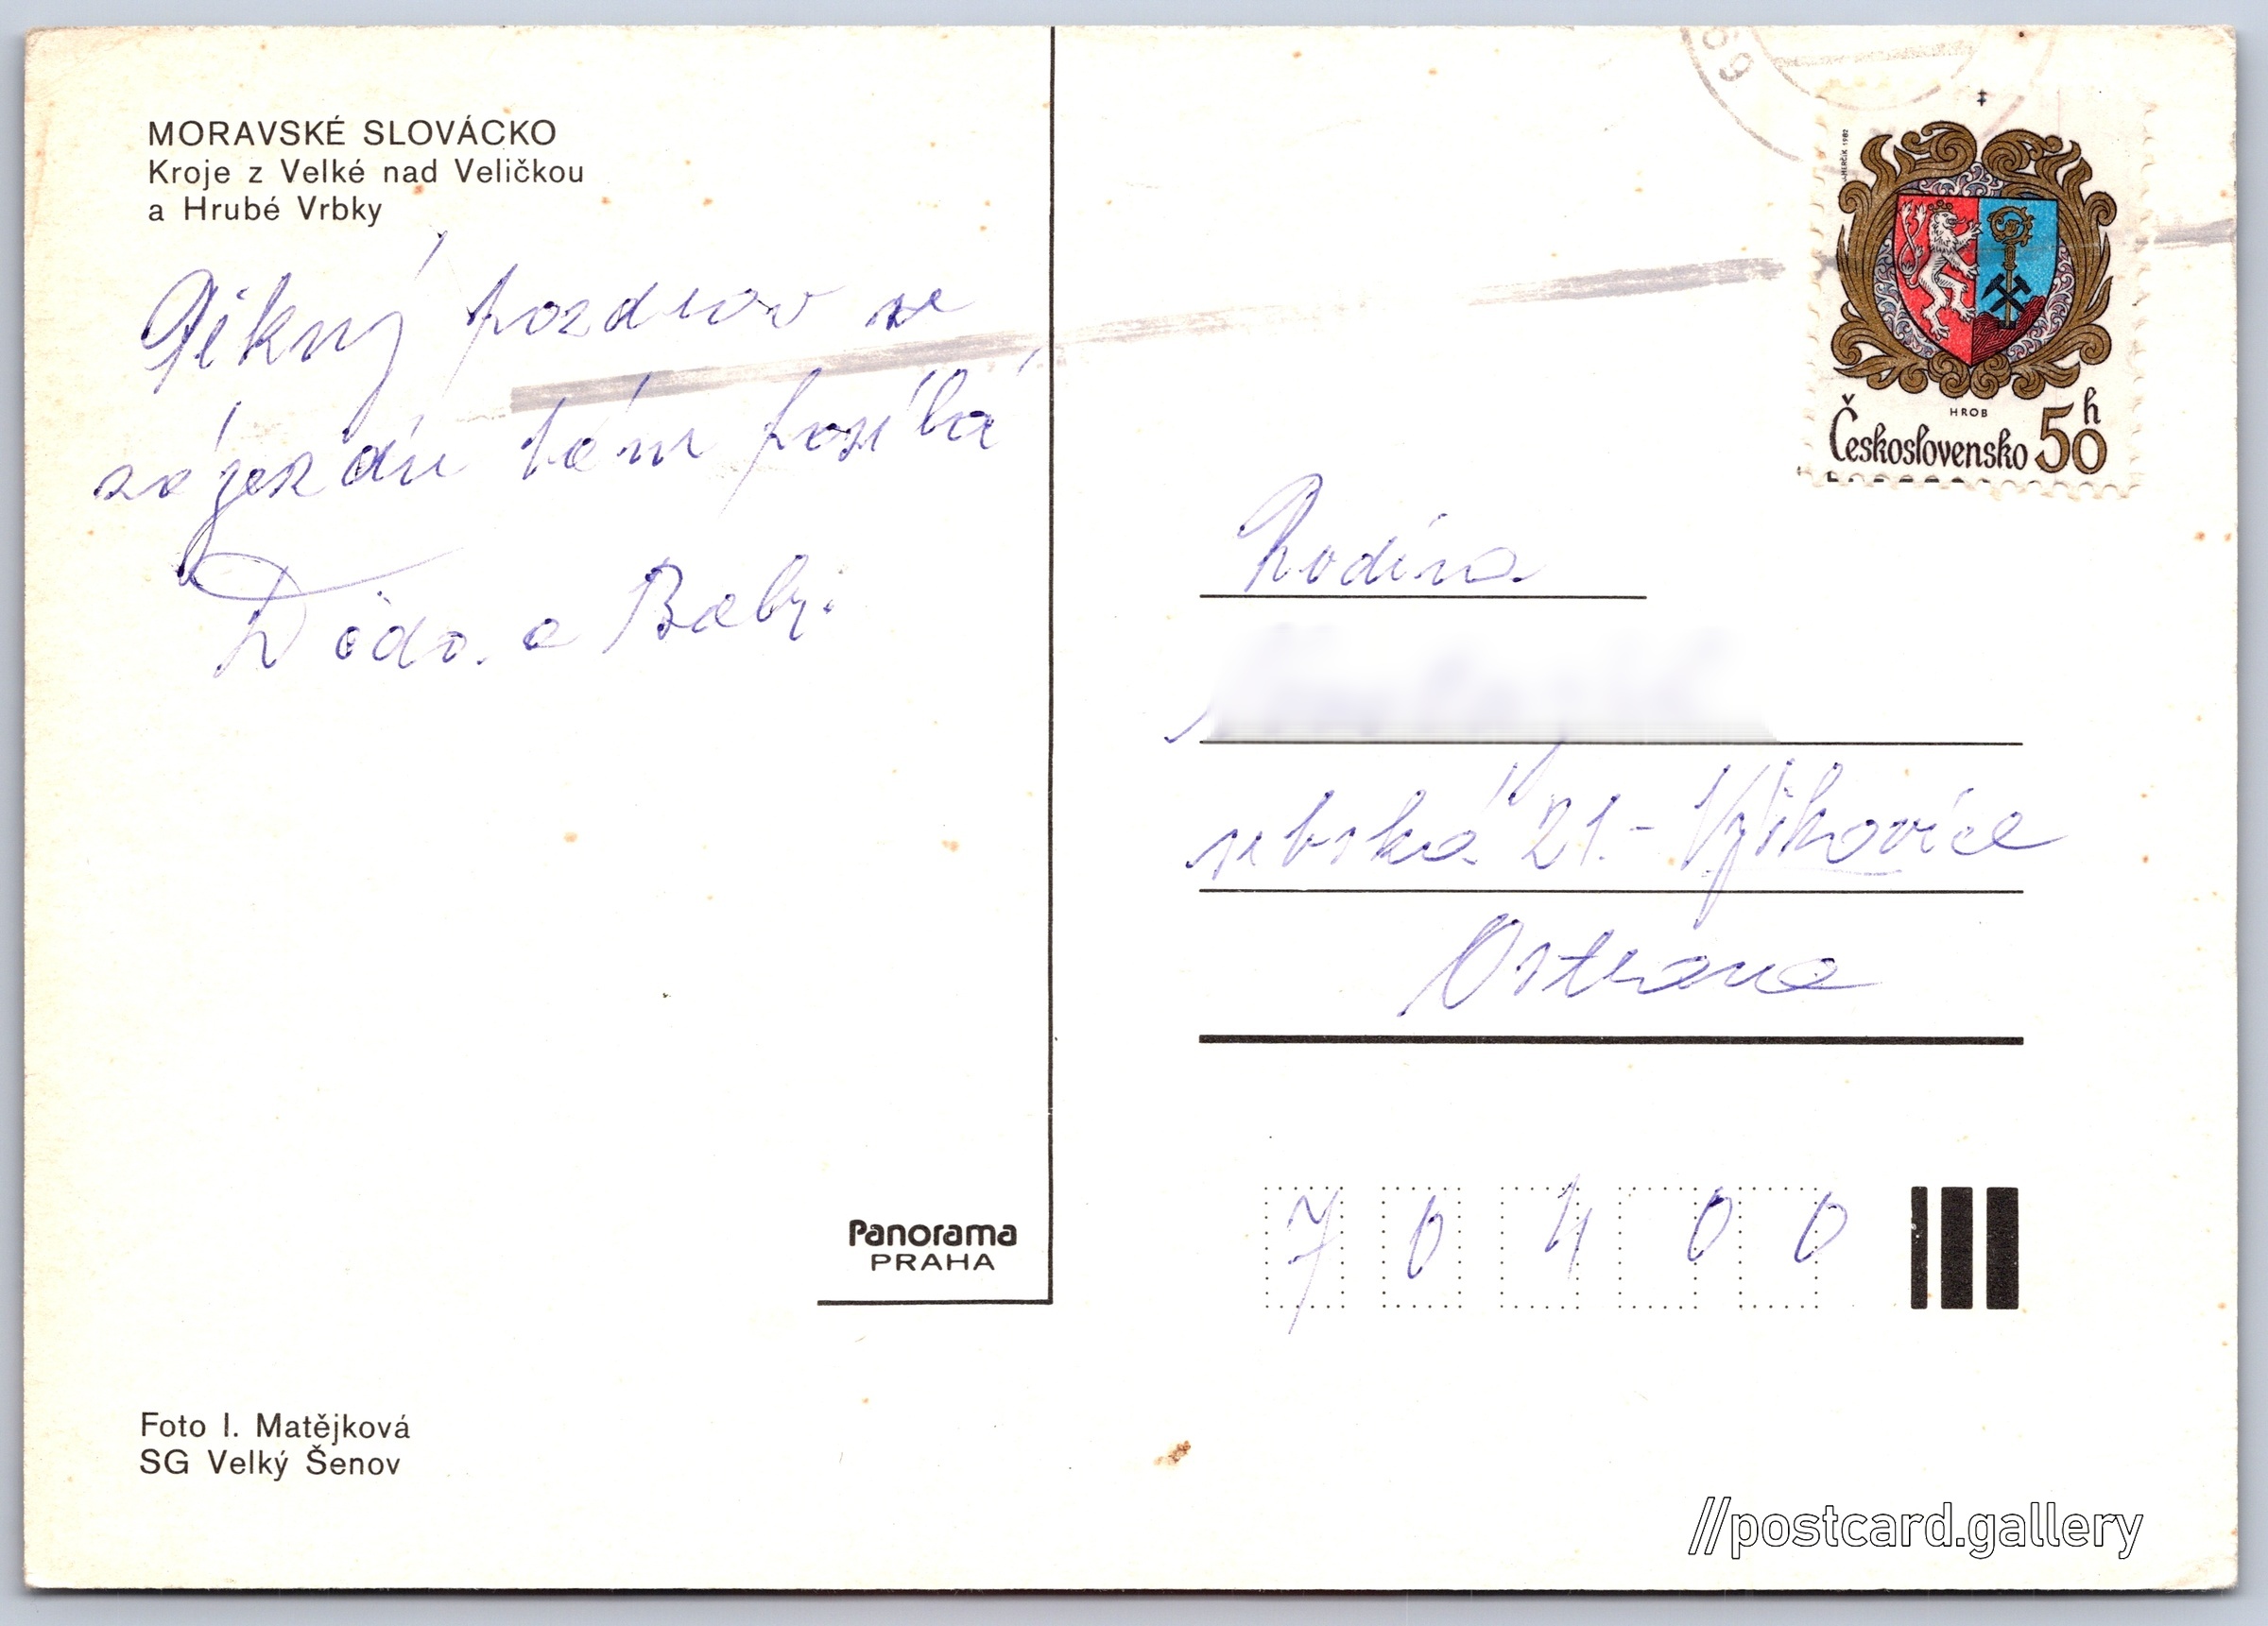 MORAVSKÉ SLOVÁCKO
Kroje z Velké nad Veličkou
a Hrubé Vrbky
Pěkný pozdrav ze
zájezdu Vám posílá
Děda a Baby.
Panorama
PRAHA
Foto I. Matějková
SG Velký Šenov
69
J. HERČÍK 1982
HROB
Československo 50h
Rodina
srbská 21. - Výškovice
Ostrava
70400
//postcard.gallery